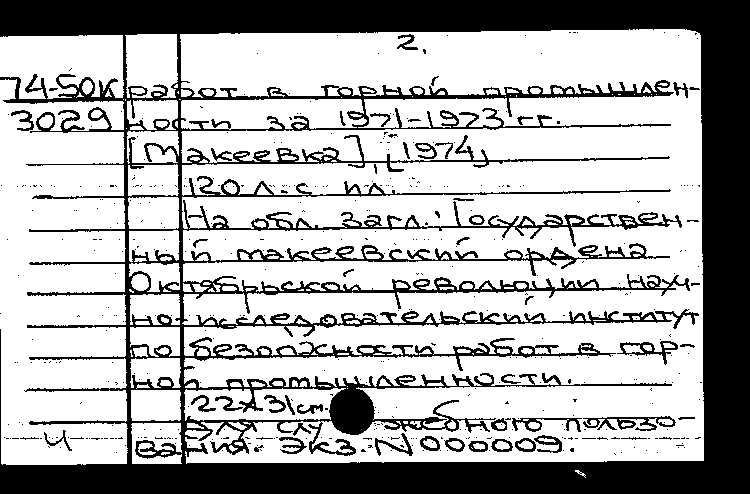 2.
74-50К работ в горной промышлен-
3029 ности за 1971-1973 гг.
[Макеевка], [1974].
120 л. с ил.
На обл. загл.: Государствен-
ный макеевский ордена
Октябрьской революции науч-
но-исследовательский институт
по безопжности работ в гор-
ной промышленности.
22х31 см.
Для служебного пользо-
Ч вания. Экз. N 000009.